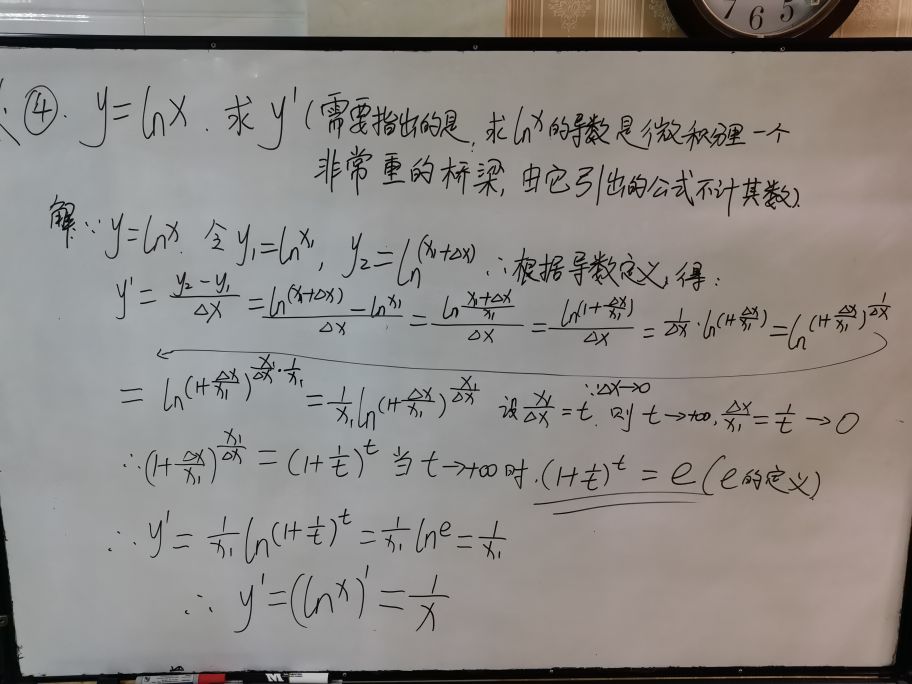 7 6 5
④. y=lnx. 求y'(需要指出的是,求lnx的导数是微积分里一个
非常重的桥梁,由它引出的公式不计其数).
解:∵ y=lnx. 令y₁=lnx₁, y₂=ln(x₁+Δx) ∴根据导数定义,得:
y'= (y₂-y₁)/Δx = (ln(x₁+Δx)-lnx₁)/Δx = (ln((x₁+Δx)/x₁))/Δx = (ln(1+Δx/x₁))/Δx = 1/Δx·ln(1+Δx/x₁) = ln(1+Δx/x₁)^(1/Δx)
= ln(1+Δx/x₁)^(x₁/Δx·1/x₁) = 1/x₁ ln(1+Δx/x₁)^(x₁/Δx) 设x₁/Δx=t. ∵Δx→0 则t→+∞, Δx/x₁=1/t→0
∴(1+Δx/x₁)^(x₁/Δx) = (1+1/t)^t 当t→+∞时.(1+1/t)^t = e(e的定义)
∴y'= 1/x₁ ln(1+1/t)^t = 1/x₁ lne = 1/x₁
∴ y'=(lnx)'=1/x